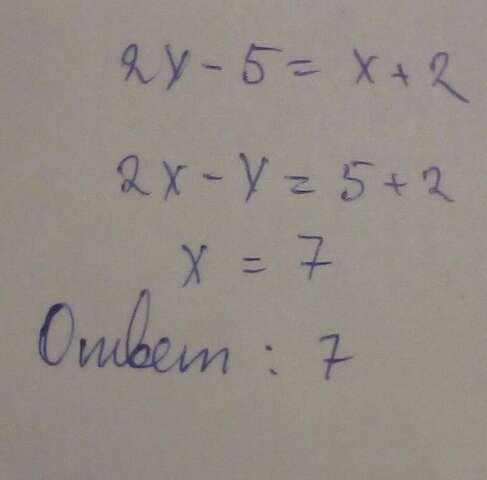 2x - 5 = x + 2
2x - x = 5 + 2
x = 7
Ответ: 7